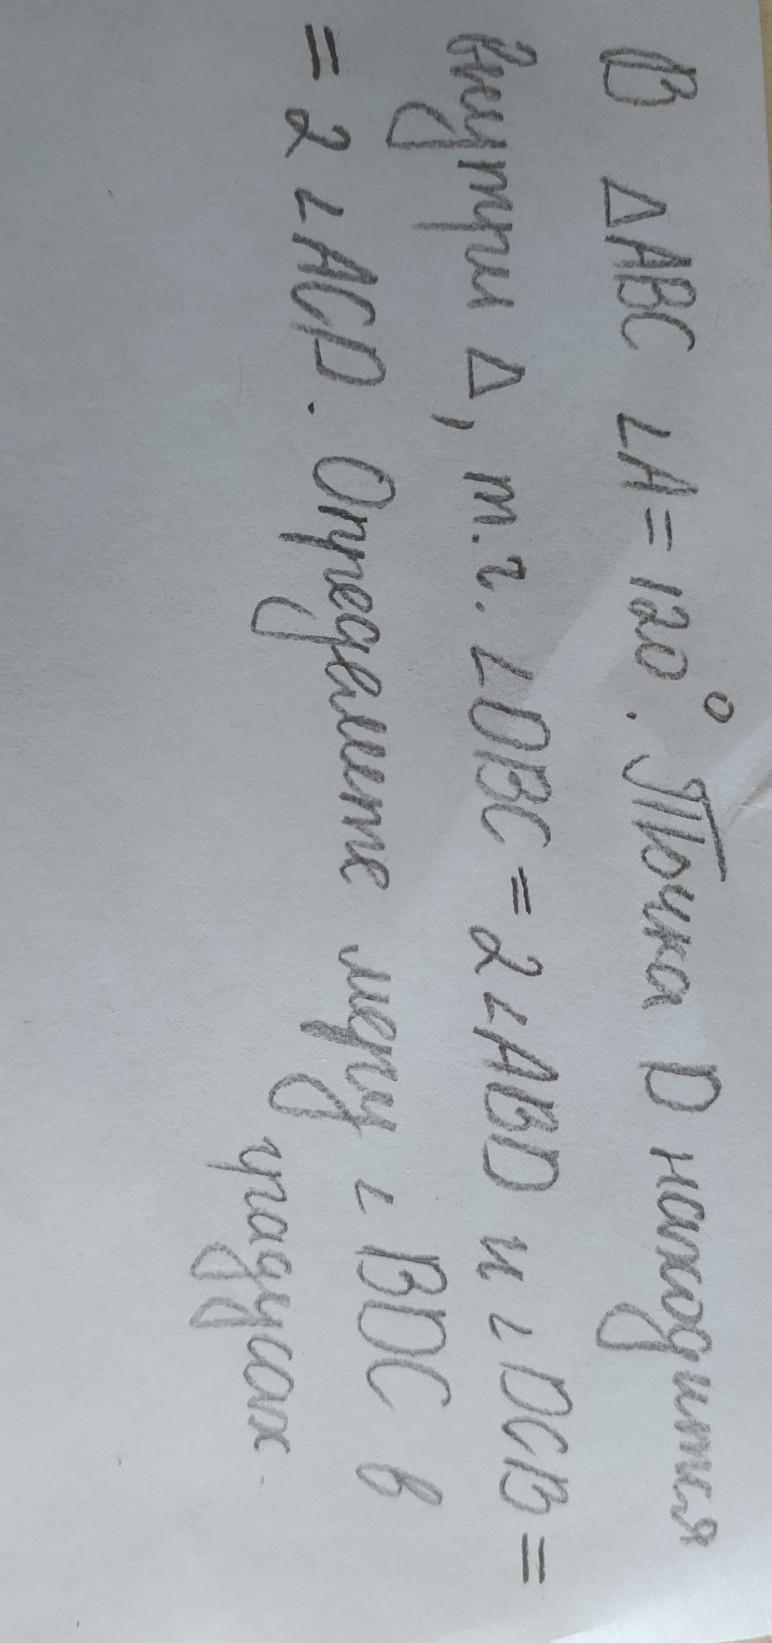 В ΔABC ∠A=120°. Точка D находится
внутри Δ, т.ч. ∠DBC = 2∠ABD и ∠DCB =
= 2∠ACD. Определите меру ∠BDC в
градусах.